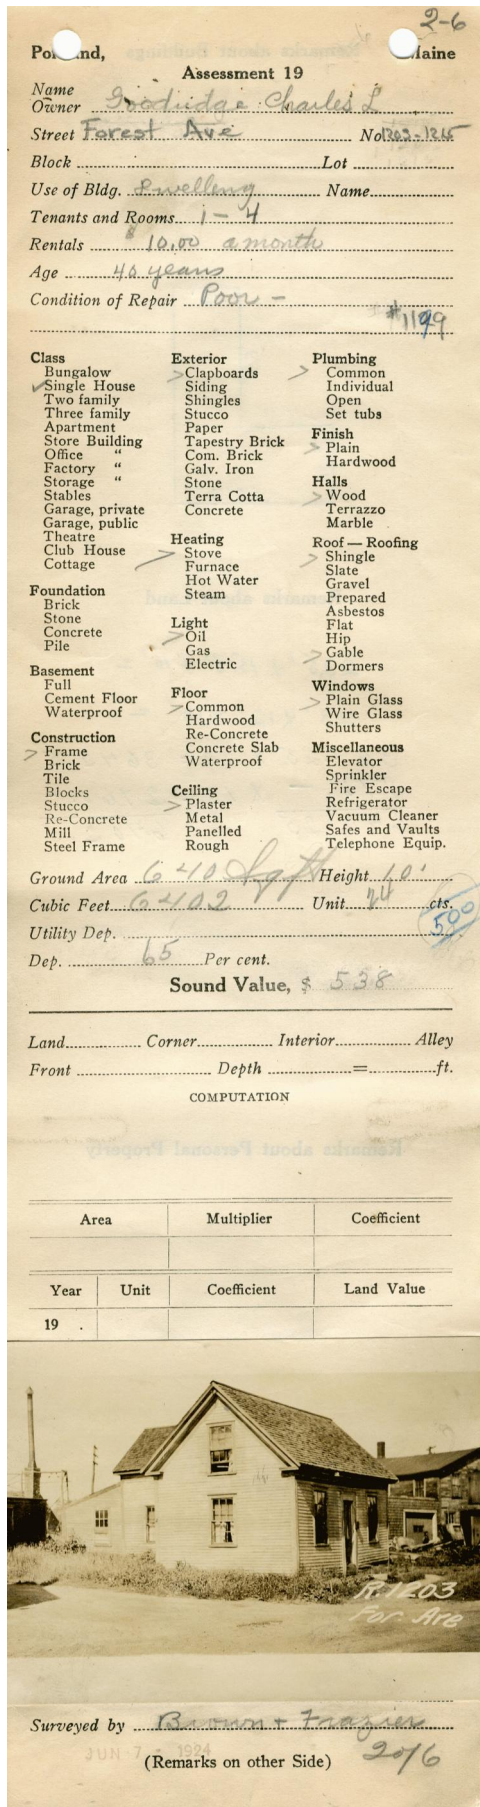 2-6
Portland, Maine
Assessment 19
Name
Owner Goodridge Charles L
Street Forest Ave No 1203-1265
Block Lot
Use of Bldg. Dwelleng Name
Tenants and Rooms 1 - 4
Rentals $10.00 a month
Age 40 years
Condition of Repair Poor -
#1199
Class
Bungalow
Single House
Two family
Three family
Apartment
Store Building
Office "
Factory "
Storage "
Stables
Garage, private
Garage, public
Theatre
Club House
Cottage
Foundation
Brick
Stone
Concrete
Pile
Basement
Full
Cement Floor
Waterproof
Construction
Frame
Brick
Tile
Blocks
Stucco
Re-Concrete
Mill
Steel Frame
Exterior
Clapboards
Siding
Shingles
Stucco
Paper
Tapestry Brick
Com. Brick
Galv. Iron
Stone
Terra Cotta
Concrete
Heating
Stove
Furnace
Hot Water
Steam
Light
Oil
Gas
Electric
Floor
Common
Hardwood
Re-Concrete
Concrete Slab
Waterproof
Ceiling
Plaster
Metal
Panelled
Rough
Plumbing
Common
Individual
Open
Set tubs
Finish
Plain
Hardwood
Halls
Wood
Terrazzo
Marble
Roof — Roofing
Shingle
Slate
Gravel
Prepared
Asbestos
Flat
Hip
Gable
Dormers
Windows
Plain Glass
Wire Glass
Shutters
Miscellaneous
Elevator
Sprinkler
Fire Escape
Refrigerator
Vacuum Cleaner
Safes and Vaults
Telephone Equip.
Ground Area 640 Sq ft Height 10'
Cubic Feet 6402 Unit 24 cts.
500
Utility Dep.
Dep. 65 Per cent.
Sound Value, $ 538
Land Corner Interior Alley
Front Depth = ft.
COMPUTATION
Area Multiplier Coefficient
Year Unit Coefficient Land Value
19 .
R.1203
For. Ave
Surveyed by Brown + Frazier
JUN 7 - 1924
(Remarks on other Side) 20/6